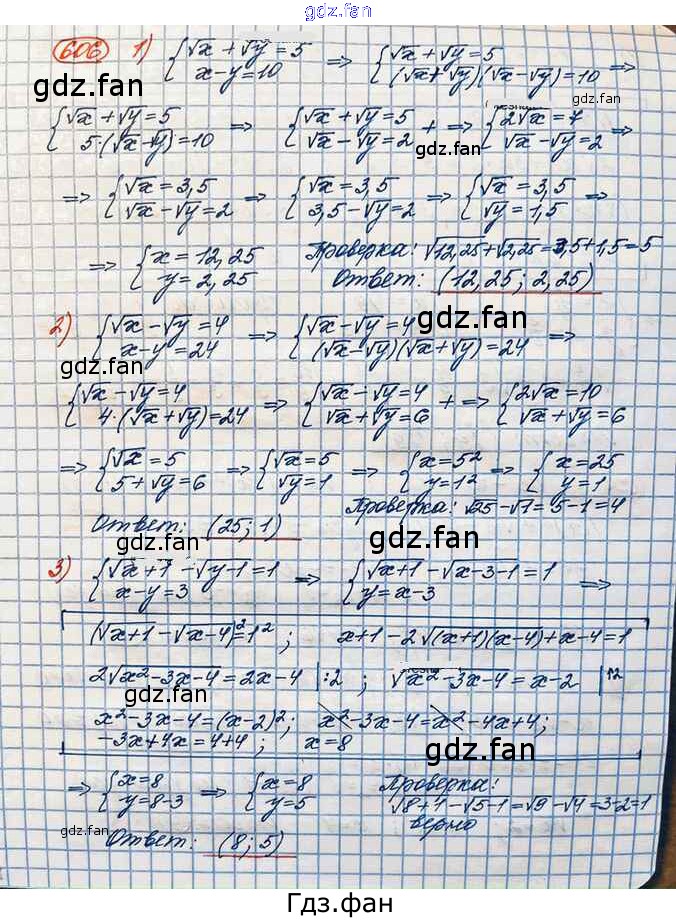 gdz.fan
606 1) {√x + √y = 5 ; x-y=10 ⇒ {√x + √y = 5 ; (√x+√y)(√x-√y)=10 ⇒
gdz.fan
gdz.fan
{√x + √y = 5 ; 5·(√x-√y)=10 ⇒ {√x + √y = 5 ; √x - √y = 2 + ⇒ {2√x = 7 ; √x - √y = 2 ⇒
gdz.fan
⇒ {√x = 3,5 ; √x - √y = 2 ⇒ {√x = 3,5 ; 3,5 - √y = 2 ⇒ {√x = 3,5 ; √y = 1,5 ⇒
gdz.fan
⇒ {x = 12,25 ; y = 2,25 Проверка: √12,25+√2,25=3,5+1,5=5
Ответ: (12,25; 2,25)
2) {√x - √y = 4 ; x-y = 24 ⇒ {√x - √y = 4 ; (√x-√y)(√x+√y)=24 ⇒
gdz.fan
gdz.fan
{√x - √y = 4 ; 4·(√x+√y)=24 ⇒ {√x - √y = 4 ; √x + √y = 6 + ⇒ {2√x = 10 ; √x + √y = 6
⇒ {√x = 5 ; 5+√y = 6 ⇒ {√x = 5 ; √y = 1 ⇒ {x = 5² ; y = 1² ⇒ {x = 25 ; y = 1
Проверка: √25-√1=5-1=4
Ответ: (25; 1)
gdz.fan
gdz.fan
3) {√x+1 - √y-1 = 1 ; x-y = 3 ⇒ {√x+1 - √x-3-1 = 1 ; y = x-3 ⇒
(√x+1 - √x-4)²=1² ; x+1-2√(x+1)(x-4)+x-4=1
2√x²-3x-4 = 2x-4 |:2 ; √x²-3x-4 = x-2 |↑2
gdz.fan
x²-3x-4=(x-2)²; x²-3x-4=x²-4x+4;
-3x+4x=4+4; x=8
gdz.fan
⇒ {x=8 ; y=8-3 ⇒ {x=8 ; y=5 Проверка:
√8+1-√5-1=√9-√4=3-2=1
верно
gdz.fan
Ответ: (8; 5)
gdz.fan
Гдз.фан